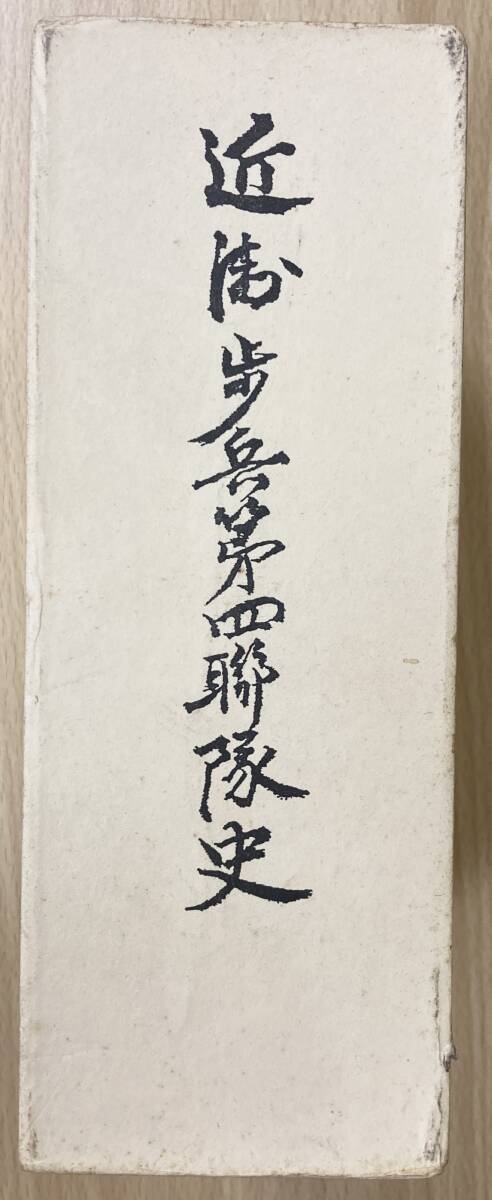 近衛歩兵第四聯隊史